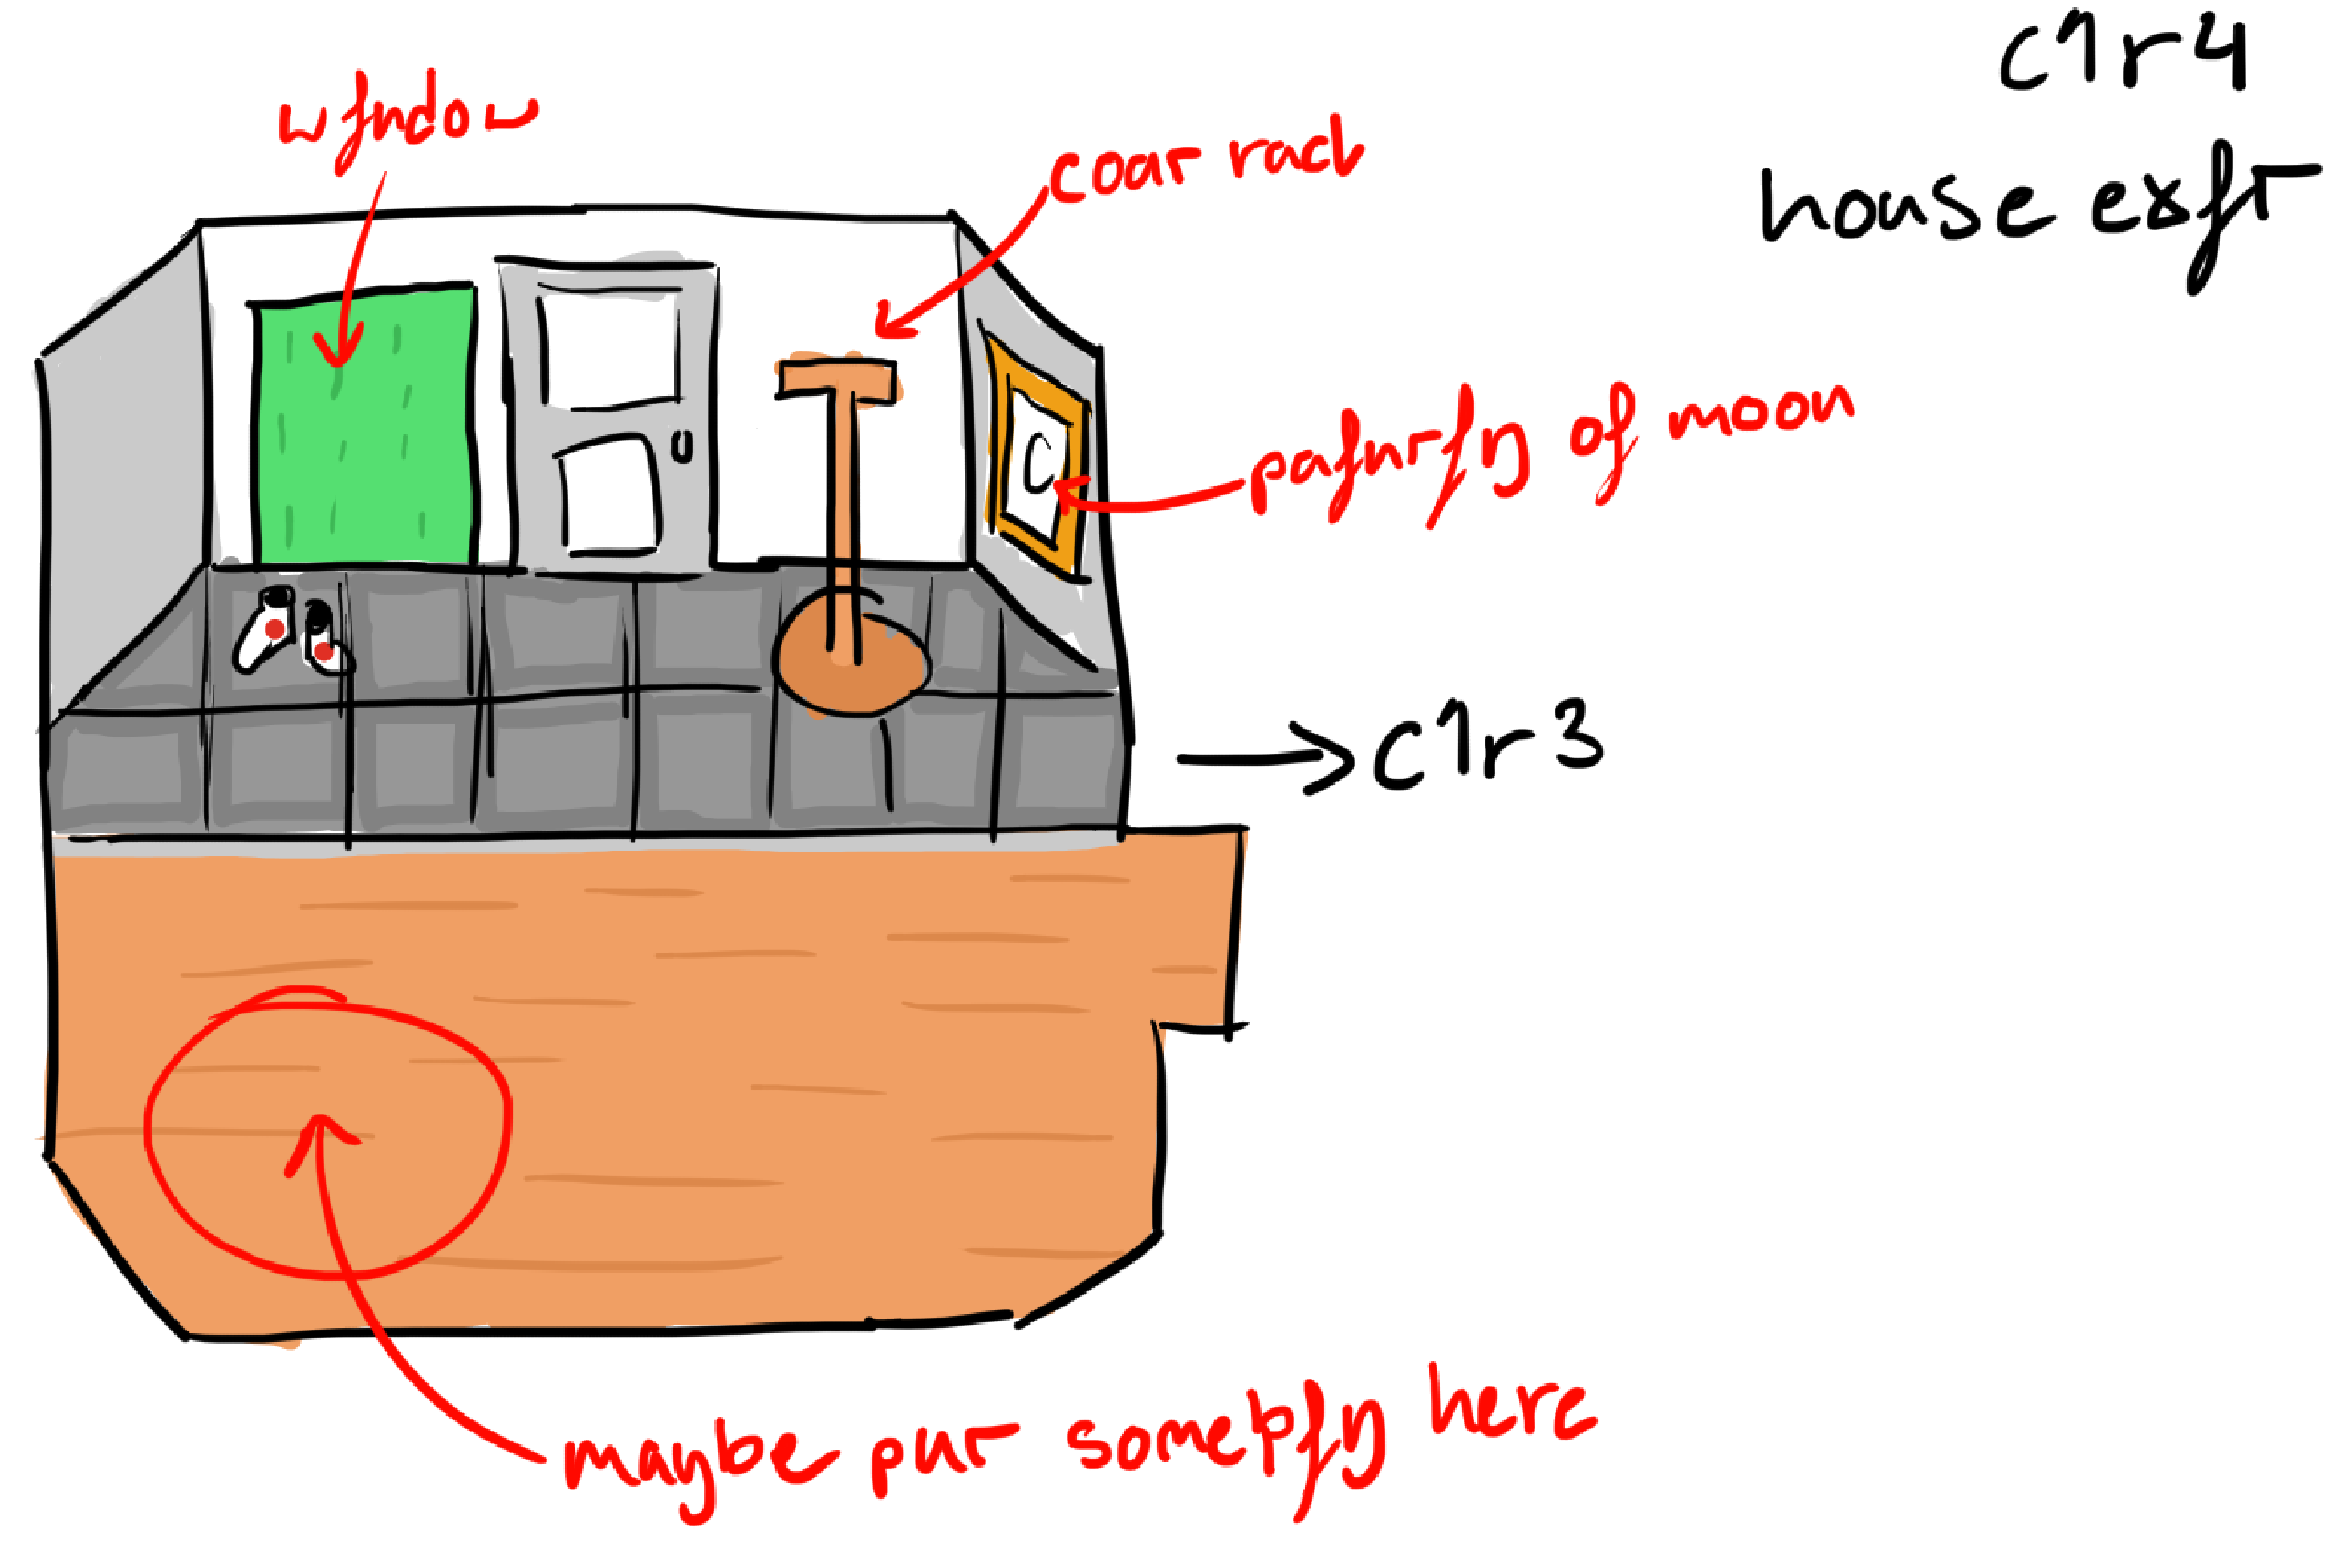 c1r4
house exit
window
coat rack
painting of moon
→c1r3
maybe put something here